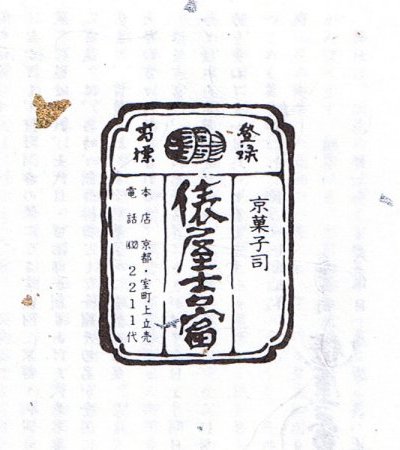 登録
商標
京菓子司
俵屋吉富
本店 京都・室町上立売
電話 ㈹432 2211代